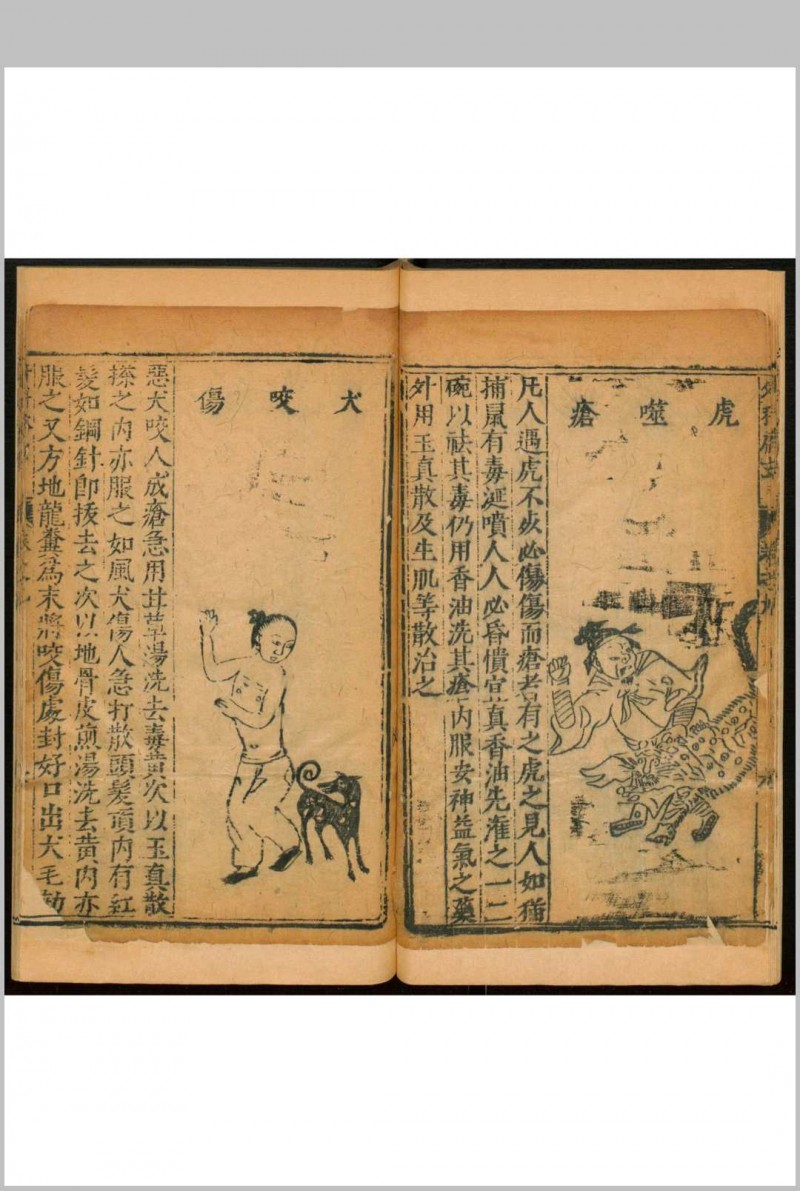 虎噬瘡
凡人遇虎不疾必傷傷而瘡者有之虎之見人如猫
捕鼠有毒涎噴人人必昏憒宜真香油先灌之一二
碗以祛其毒仍用香油洗其瘡內服安神益氣之藥
外用玉真散及生肌等散治之
犬咬傷
惡犬咬人成瘡急用甘草湯洗去毒黃次以玉真散
搽之內亦服之如風犬傷人急打散頭髮頂內有紅
髮如鋼針即拔去之次以地骨皮煎湯洗去黃內亦
服之又方地龍糞為末將咬傷處封好口出犬毛勑